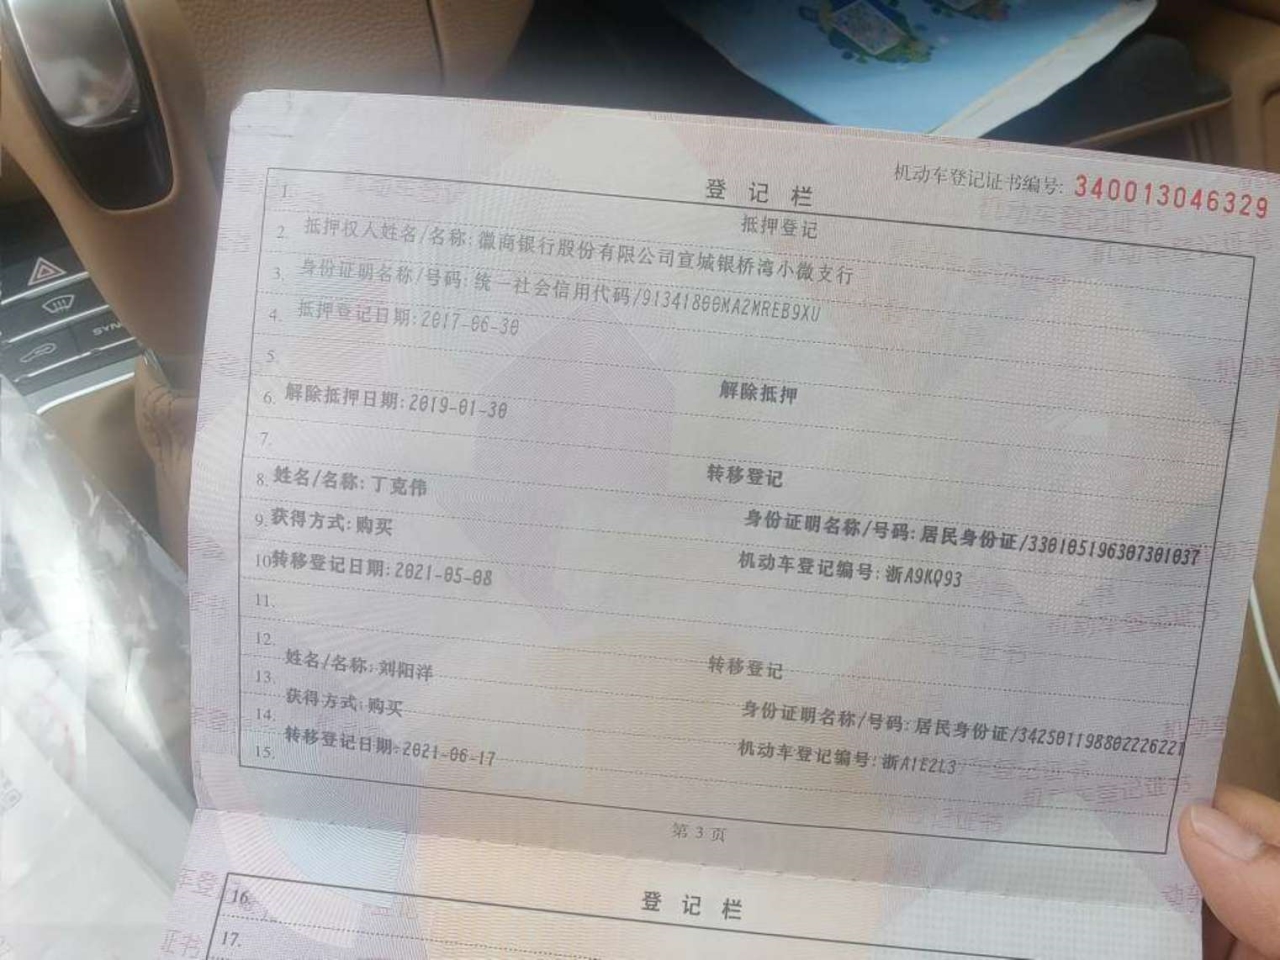 机动车登记证书编号: 340013046329
登 记 栏
1. 抵押登记
2. 抵押权人姓名/名称: 徽商银行股份有限公司宣城银桥湾小微支行
3. 身份证明名称/号码: 统一社会信用代码/91341800MA2MREB9XU
4. 抵押登记日期: 2017-06-30
5. 解除抵押
6. 解除抵押日期: 2019-01-30
7. 转移登记
8. 姓名/名称: 丁克伟 身份证明名称/号码: 居民身份证/330105196307301037
9. 获得方式: 购买 机动车登记编号: 浙A9KQ93
10. 转移登记日期: 2021-05-08
11.
12. 转移登记
13. 姓名/名称: 刘阳洋 身份证明名称/号码: 居民身份证/342501198802226221
14. 获得方式: 购买 机动车登记编号: 浙A1E2L3
15. 转移登记日期: 2021-06-17
第 3 页
登 记 栏
16.
17.